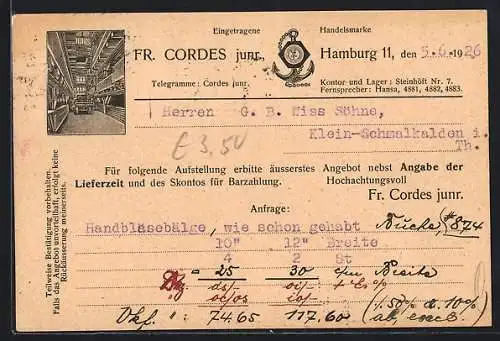 Eingetragene Handelsmarke
FR. CORDES junr., Hamburg 11, den 5.6.1926
Telegramme: Cordes junr.
Kontor und Lager: Steinhöft Nr. 7.
Fernsprecher: Hansa, 4881, 4882, 4883.
Herren G. B. Wiss Söhne,
Klein-Schmalkalden i.
Th.
€ 3,50
Für folgende Aufstellung erbitte äusserstes Angebot nebst Angabe der
Lieferzeit und des Skontos für Barzahlung. Hochachtungsvoll
Fr. Cordes junr.
Anfrage:
Handbläsebälge, wie schon gehabt Buche, #874
10" 12" Breite
4 2 St
25 30 cm Breite
74.65 117.60 (50% & 10%
Teilweise Bestätigung vorbehalten.
Falls das Angebot unvorteilhaft, erfolgt keine
Rückäusserung meinerseits.